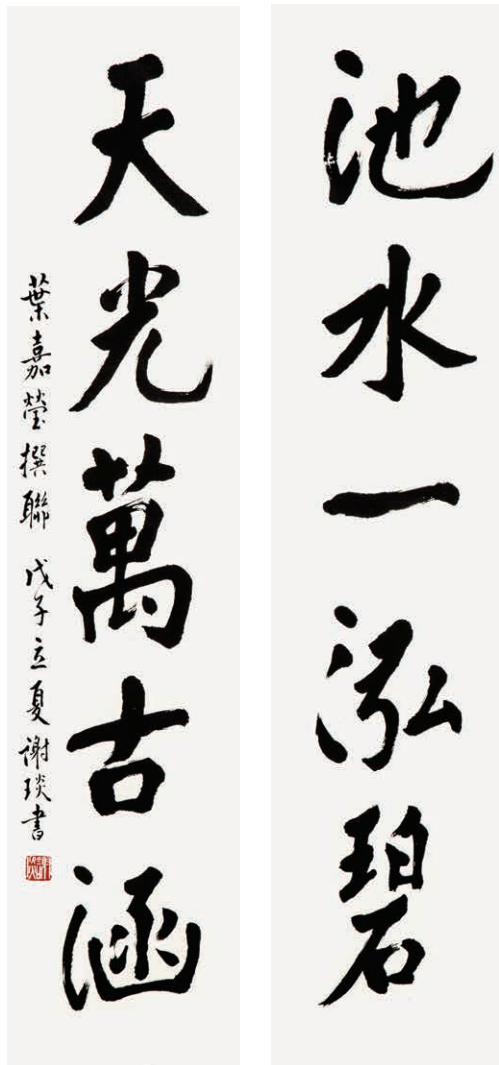 池水一泓碧
天光萬古涵
葉嘉瑩撰聯 戊子立夏謝琰書